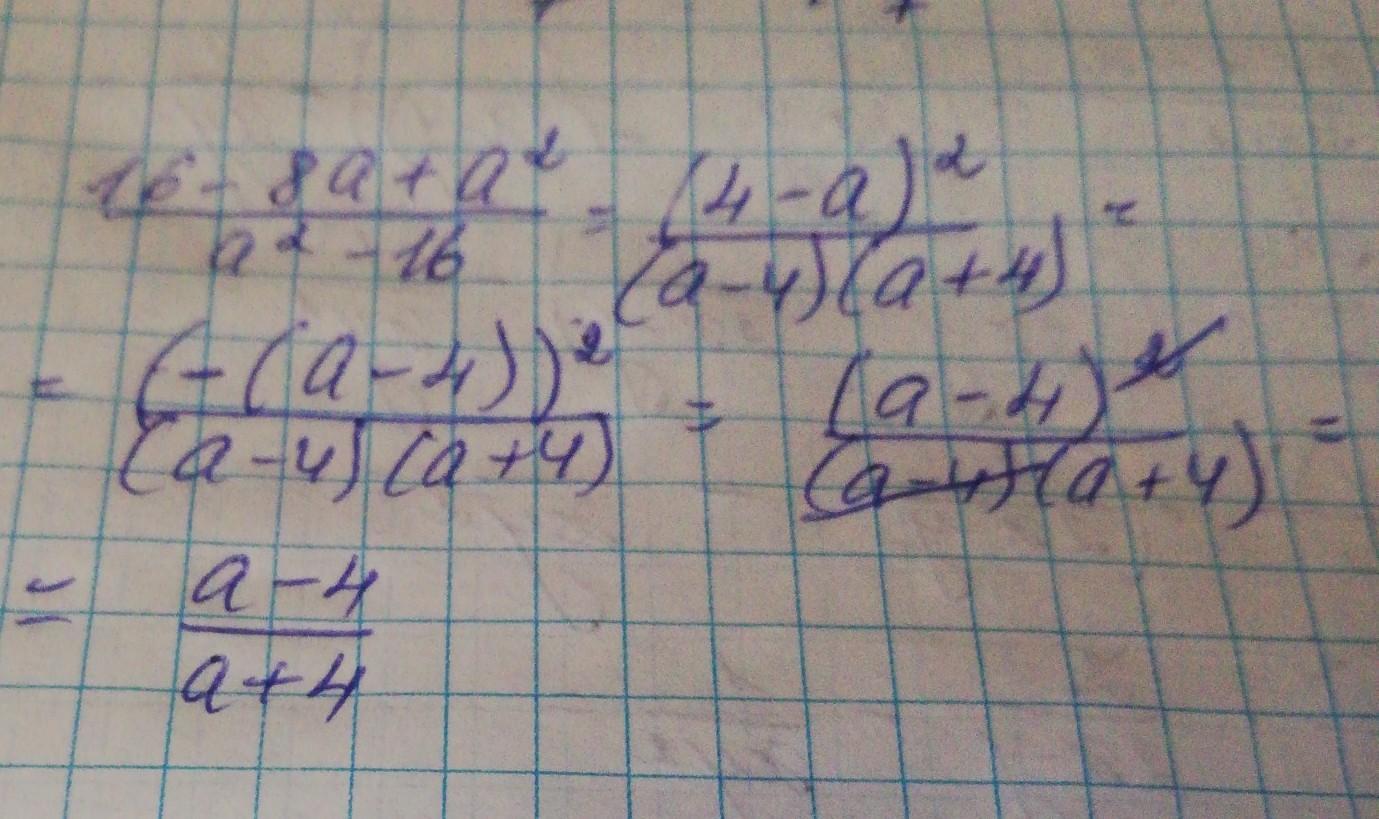 (16 - 8a + a²)/(a² - 16) = (4 - a)²/((a - 4)(a + 4)) =
= (-(a - 4))²/((a - 4)(a + 4)) = (a - 4)²/((a - 4)(a + 4)) =
= (a - 4)/(a + 4)